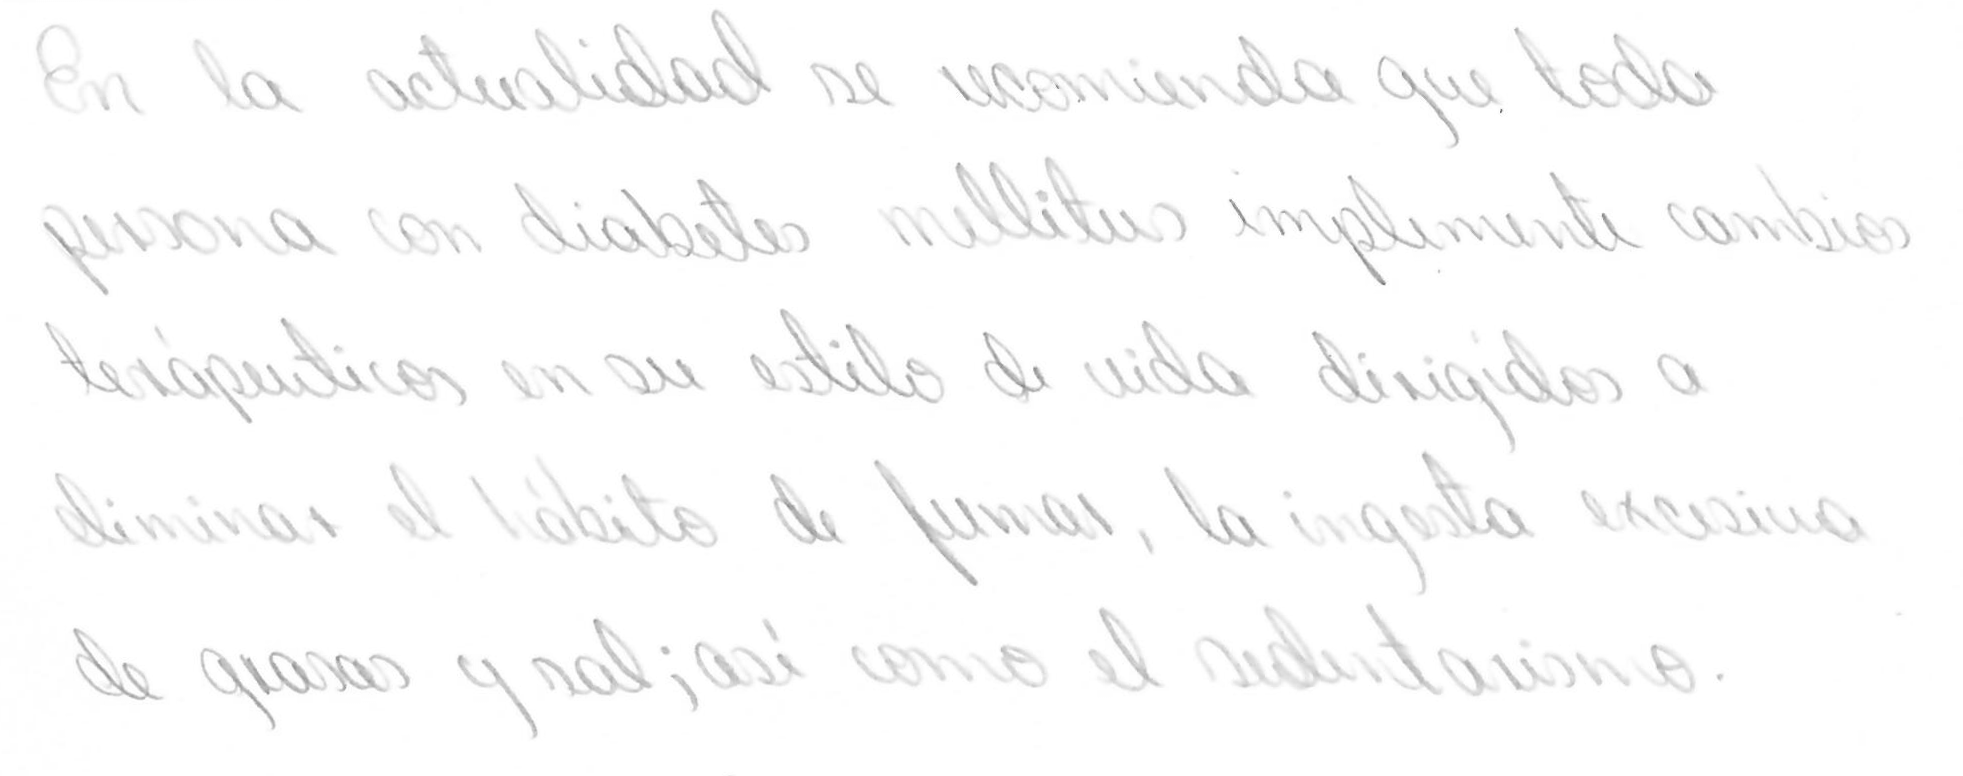 En la actualidad se recomienda que toda
persona con diabetes mellitus implemente cambios
terápeuticos en su estilo de vida dirigidos a
eliminar el hábito de fumar, la ingesta excesiva
de grasas y sal; así como el sedentarismo.